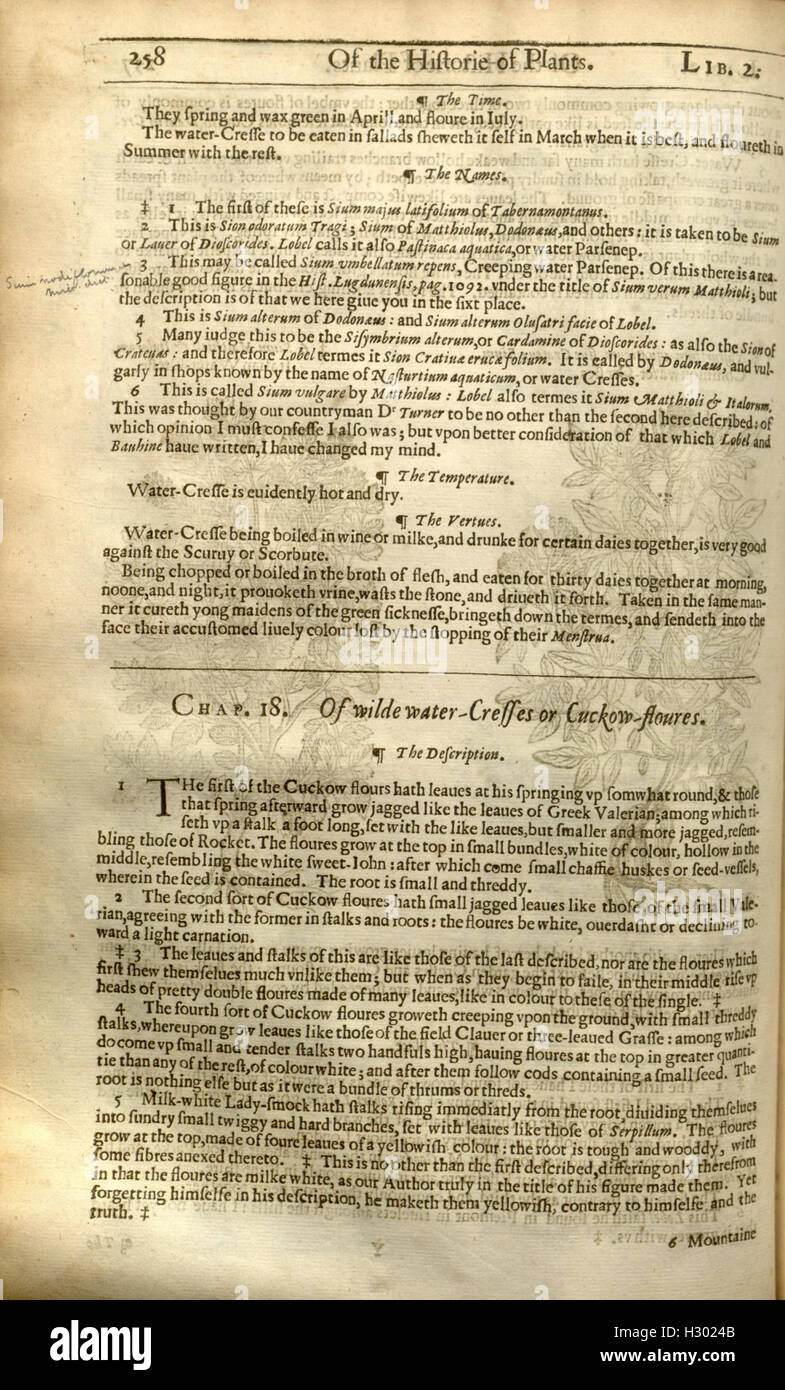 258 Of the Hiſtorie of Plants. LIB. 2.
¶ The Time.
They ſpring and wax green in Aprill and floure in Iuly.
The water-Creſſe to be eaten in ſallads ſheweth it ſelf in March when it is beſt, and floureth in
Summer with the reſt.
¶ The Names.
‡ 1 The firſt of theſe is Sium majus latifolium of Tabernamontanus.
2 This is Sion odoratum Tragi; Sium of Matthiolus, Dodonæus, and others: it is taken to be Sium
or Lauer of Dioſcorides. Lobel calls it alſo Paſtinaca aquatica, or water Parſenep.
3 This may be called Sium vmbellatum repens, Creeping water Parſenep. Of this there is a rea-
ſonable good figure in the Hiſt. Lugdunenſis, pag. 1092. vnder the title of Sium verum Matthioli; but
the deſcription is of that we here giue you in the ſixt place.
4 This is Sium alterum of Dodonæus: and Sium alterum Oluſatri facie of Lobel.
5 Many iudge this to be the Siſymbrium alterum, or Cardamine of Dioſcorides: as alſo the Sion of
Crateuas: and therefore Lobel termes it Sion Cratiuæ erucæfolium. It is called by Dodonæus, and vul-
garly in ſhops known by the name of Naſturtium aquaticum, or water Creſſes.
6 This is called Sium vulgare by Matthiolus: Lobel alſo termes it Sium Matthioli & Italorum.
This was thought by our countryman Dr Turner to be no other than the ſecond here deſcribed: of
which opinion I muſt confeſſe I alſo was; but vpon better conſideration of that which Lobel and
Bauhine haue written, I haue changed my mind.
¶ The Temperature.
Water-Creſſe is euidently hot and dry.
¶ The Vertues.
Water-Creſſe being boiled in wine or milke, and drunke for certain daies together, is very good
againſt the Scuruy or Scorbute.
Being chopped or boiled in the broth of fleſh, and eaten for thirty daies together at morning,
noone, and night, it prouoketh vrine, waſts the ſtone, and driueth it forth. Taken in the ſame man-
ner it cureth yong maidens of the green ſickneſſe, bringeth down the termes, and ſendeth into the
face their accuſtomed liuely colour loſt by the ſtopping of their Menſtrua.
CHAP. 18. Of wilde water-Creſſes or Cuckow-floures.
¶ The Deſcription.
1 THe firſt of the Cuckow flours hath leaues at his ſpringing vp ſomwhat round, & thoſe
that ſpring afterward grow jagged like the leaues of Greek Valerian; among which ri-
ſeth vp a ſtalk a foot long, ſet with the like leaues, but ſmaller and more jagged, reſem-
bling thoſe of Rocket. The floures grow at the top in ſmall bundles, white of colour, hollow in the
middle, reſembling the white ſweet-Iohn: after which come ſmall chaffie huskes or ſeed-veſſels,
wherein the ſeed is contained. The root is ſmall and threddy.
2 The ſecond ſort of Cuckow floures hath ſmall jagged leaues like thoſe of the ſmall Vale-
rian, agreeing with the former in ſtalks and roots: the floures be white, ouerdaſht or declining to-
ward a light carnation.
‡ 3 The leaues and ſtalks of this are like thoſe of the laſt deſcribed, nor are the floures which
firſt ſhew themſelues much vnlike them; but when as they begin to faile, in their middle riſe vp
heads of pretty double floures made of many leaues, like in colour to theſe of the ſingle. ‡
4 The fourth ſort of Cuckow floures groweth creeping vpon the ground, with ſmall threddy
ſtalks, whereupon grow leaues like thoſe of the field Clauer or three-leaued Graſſe: among which
do come vp ſmall and tender ſtalks two handfuls high, hauing floures at the top in greater quanti-
tie than any of the reſt, of colour white; and after them follow cods containing a ſmall ſeed. The
root is nothing elſe but as it were a bundle of thrums or threds.
5 Milk-white Lady-ſmock hath ſtalks riſing immediatly from the root, diuiding themſelues
into ſundry ſmall twiggy and hard branches, ſet with leaues like thoſe of Serpillum. The floures
grow at the top, made of foure leaues of a yellowiſh colour: the root is tough and wooddy, with
ſome fibres anexed thereto. ‡ This is no other than the firſt deſcribed, differing only therefrom
in that the floures are milke white, as our Author truly in the title of his figure made them. Yet
forgetting himſelfe in his deſcription, he maketh them yellowiſh, contrary to himſelfe and the
truth. ‡
6 Mountaine
alamy stock photo
H3024B
www.alamy.com